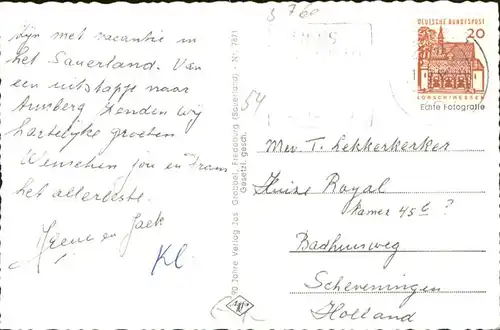 Zijn met vacantie in
het Sauerland. Van
een uitstapje naar
Arnsberg zenden wij
hartelijke groeten
Wenschen jou en Frans
het allerbeste.
Irene en Jack
Kl.
54
90 Jahre Verlag Jos. Grobbel, Fredeburg (Sauerland). Nr. 7871
Gesetzl. gesch.
3760
DEUTSCHE BUNDESPOST
20
LORSCH/HESSEN
Echte Fotografie
Mev T. Lekkerkerker
Huize Royal
kamer 45c ?
Badhuisweg
Scheveningen
Holland